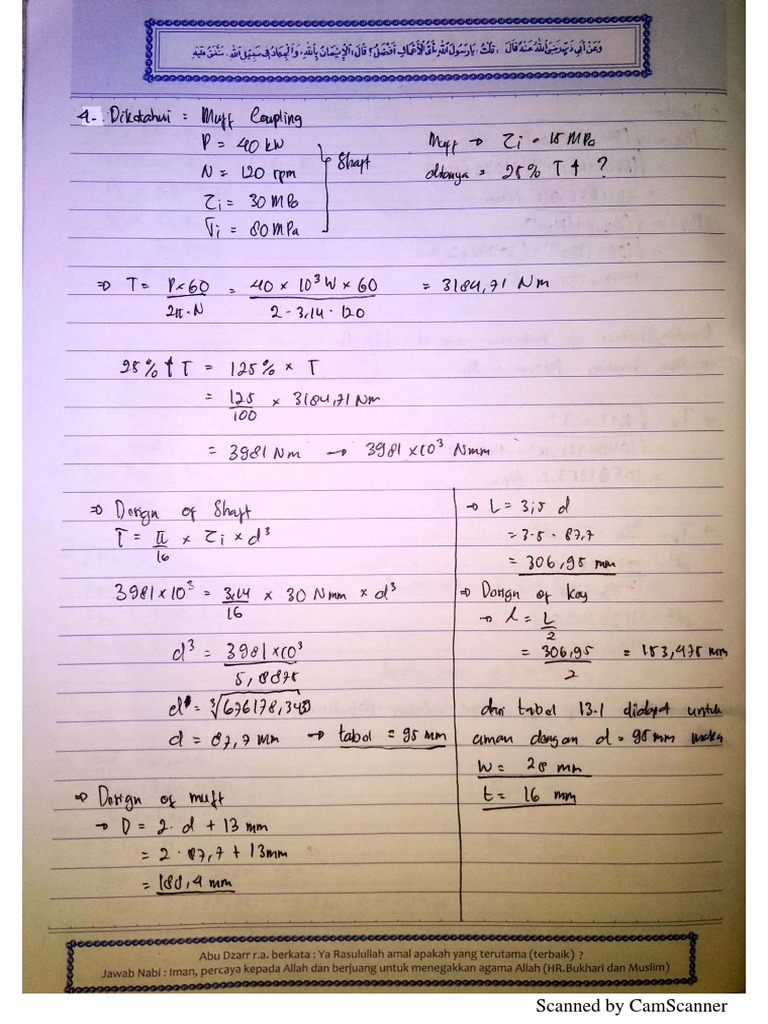 4. Diketahui = Muff Coupling
P = 40 kW
N = 120 rpm
τi = 30 MPa
σi = 80 MPa
Shaft
Muff → τi = 15 MPa
ditanya = 25% T ↑ ?
⇒ T = P×60 / 2π·N = 40 × 10³ W × 60 / 2·3,14·120 = 3184,71 Nm
25% ↑ T = 125% × T
= 125/100 × 3184,71 Nm
= 3981 Nm → 3981 ×10³ Nmm
⇒ Design of Shaft
T = π/16 × τi × d³
3981 × 10³ = 3,14/16 × 30 Nmm × d³
d³ = 3981 ×10³ / 5,8875
d = ³√676178,343
d = 87,7 mm → tabel = 95 mm
⇒ Design of muff
→ D = 2·d + 13 mm
= 2·87,7 + 13mm
= 188,4 mm
→ L = 3,5 d
= 3·5·87,7
= 306,95 mm
⇒ Design of key
→ l = L/2
= 306,95/2 = 153,475 mm
dari tabel 13.1 didapat untuk
aman dengan d = 95 mm maka
W = 28 mm
t = 16 mm
Abu Dzarr r.a. berkata : Ya Rasulullah amal apakah yang terutama (terbaik) ?
Jawab Nabi : Iman, percaya kepada Allah dan berjuang untuk menegakkan agama Allah (HR.Bukhari dan Muslim)
Scanned by CamScanner